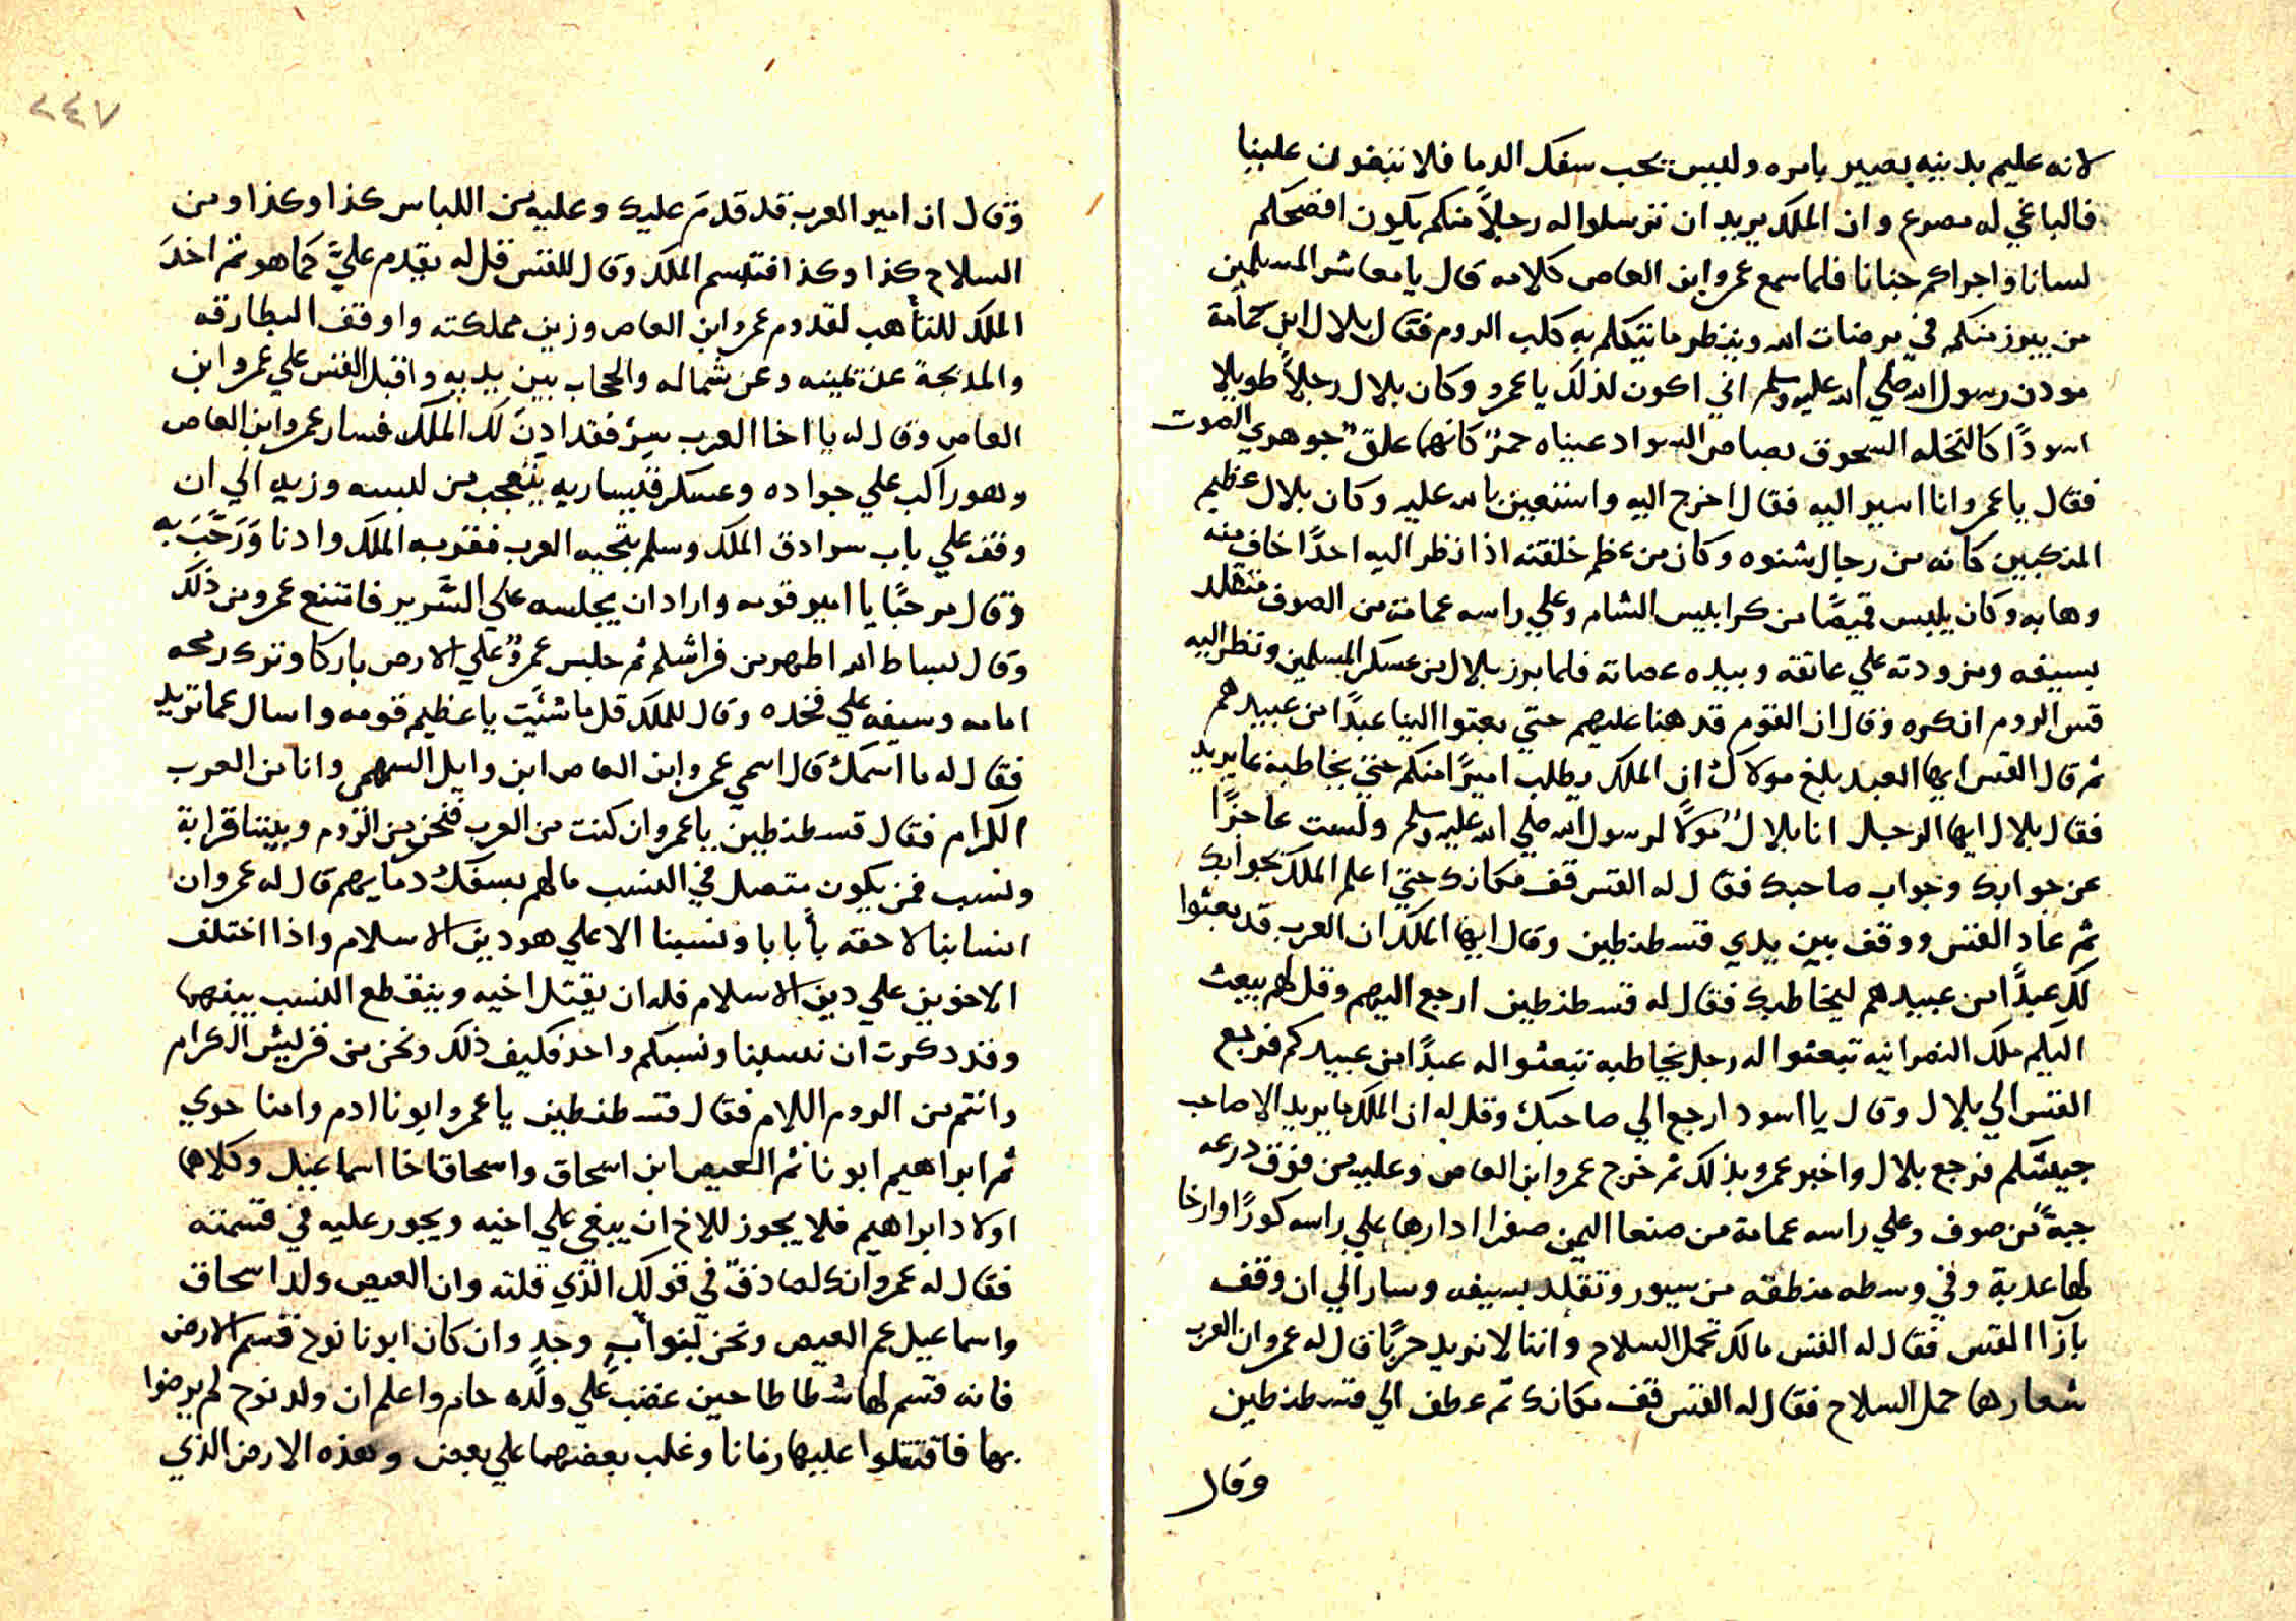 لانه عليم بدينه بصير بامره وليس يحب سفك الدما فلا تبغون علينا
فالباغي له مصرع وان الملك يريد ان ترسلوا له رجلاً منكم يكون افصحكم
لسانا واجراكم جنانا فلما سمع عمرو ابن العاص كلامه قال يا معاشر المسلمين
من يبرز منكم في مرضات الله وينظر ما يتكلم به كلب الروم فقال بلال ابن حمامة
مودن رسول الله صلي الله عليه وسلم اني اكون لذلك يا عمرو وكان بلال رجلاً طويلا
اسودًا كالنخله السحوق بصاص السواد عيناه حمرٌ كانها علق جوهري الصوت
فقال يا عمرو انا اسير اليه فقال اخرج اليه واستعين بالله عليه وكان بلال عظيم
المنكبين كانه من رجال شنوه وكان من عظم خلقته اذا نظر اليه احدًا خاف منه
وهابه وكان يلبس قميصًا من كرابيس الشام وعلي راسه عمامة من الصوف متقلد
بسيفه ومزودته علي عاتقه وبيده عصاته فلما برز بلال من عسكر المسلمين ونظر اليه
قس الروم انكره وقال ان القوم قد هنا عليهم حتي بعتوا الينا عبدًا من عبيدهم
ثم قال القس ايها العبد بلغ مولاك ان الملك يطلب اميرًا منكم حتي يخاطبه بما يريد
فقال بلال ايها الرجل انا بلالٌ مولاً لرسول الله صلي الله عليه وسلم ولست عاجزًا
عن جوابك وجواب صاحبك فقال له القس قف مكانك حتي اعلم الملك بجوابك
ثم عاد القس ووقف بين يدي قسطنطين وقال ايها الملك ان العرب قد بعثوا
لك عبدًا من عبيدهم ليخاطبك فقال له قسطنطين ارجع اليهم وقل لهم يبعث
اليكم ملك النصرانيه تبعثوا له رجل يخاطبه تبعثوا له عبدًا من عبيدكم فرجع
القس الي بلال وقال يا اسود ارجع الي صاحبك وقل له ان الملك ما يريد الا صاحب
جيشكم فرجع بلال واخبر عمرو بذلك ثم خرج عمرو ابن العاص وعليه من فوق درعه
جبةٌ من صوف وعلي راسه عمامة من صنعا اليمن صفرا ادارها علي راسه كورًا وارخا
لها عدبة وفي وسطه منطقه من سيور وتقلد بسيفه وسار الي ان وقف
بازا القس فقال له القس مالك تحمل السلاح واننا لا نريد حربًا قال له عمرو ان العرب
شعارها حمل السلاح فقال له القس قف مكانك ثم عطف الي قسطنطين
وقال
٢٤٧
وقال ان امير العرب قد قدمَ عليك وعليه من اللباس كذا وكذا ومن
السلاح كذا وكذا فتبسم الملك وقال للقس قل له يقدم عليَّ كما هو ثم اخدَ
الملك للتأهب لقدوم عمرو ابن العاص وزين مملكته واوقف البطارقه
والمدبجة عن يمينه وعن شماله والحجاب بين يديه واقبل القس علي عمرو ابن
العاص وقال له يا اخا العرب سيرْ فقد ادِنَ لك الملك فسار عمرو ابن العاص
وهو راكب علي جواده وعسكر قيساريه يتعجب من لبسه وزيه الي ان
وقف علي باب سرادق الملك وسلم بتحيه العرب فقربه الملك وادنا وَرَحَّبَ به
وقال مرحبًا يا امير قومه واراد ان يجلسه علي السَّرير فامتنع عمرو من ذلك
وقال بساط الله اطهر من فراشكم ثم جلس عمرٌو علي الارض باركا وترك رمحه
امامه وسيفه علي فخده وقال للملك قل ما شئيت يا عظيم قومه واسال عما تريد
فقال له ما اسمك قال اسمي عمرو ابن العاص ابن وايل السهمي وانا من العرب
الكرام فقال قسطنطين يا عمرو ان كنت من العرب فنحن من الروم وبيننا قرابة
ونسب فمن يكون متصل في النسب مالهم بسفك دمايهم قال له عمرو ان
انسابنا لاحقه بأبابا ونسبنا الاعلي هو دين الاسلام واذا اختلف
الاخوين علي دين الاسلام فله ان يقتل اخيه وينقطع النسب بينهما
وقد دكرت ان نسبنا ونسبكم واحد فكيف ذلك ونحن من قريش الكرام
وانتم من الروم اللام فقال قسطنطين يا عمرو ابونا ادم وامنا حوي
ثم ابراهيم ابونا ثم العيص ابن اسحاق واسحاق اخا اسماعيل وكلاهما
اولاد ابراهيم فلا يجوز للاخ ان يبغي علي اخيه ويجور عليه في قسمته
فقال له عمرو انك لصادقٌ في قولك الذي قلته وان العيص ولد اسحاق
واسماعيل عم العيص ونحن بنوأبٍ وجدٍ وان كان ابونا نوح قسم الارض
فانه قسم لها شططا حين غضب علي ولده حام واعلم ان ولد نوح لم يرضوا
بها فاقتتلوا عليها زمانا وغلب بعضهما علي بعض وهذه الارض الذي